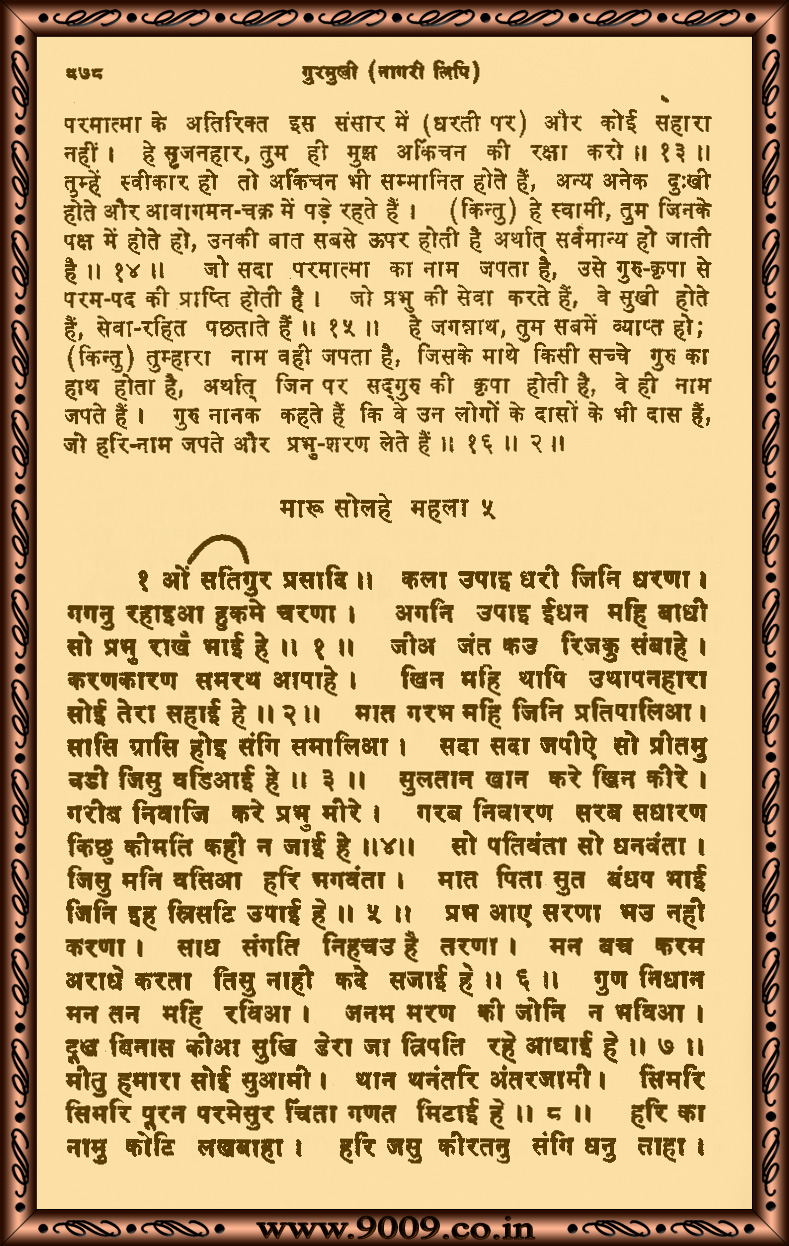 ५७८ गुरमुखी (नागरी लिपि)
परमात्मा के अतिरिक्त इस संसार में (धरती पर) और कोई सहारा
नहीं । हे सृजनहार, तुम ही मुझ अकिंचन की रक्षा करो ॥ १३ ॥
तुम्हें स्वीकार हो तो अकिंचन भी सम्मानित होते हैं, अन्य अनेक दुःखी
होते और आवागमन-चक्र में पड़े रहते हैं । (किन्तु) हे स्वामी, तुम जिनके
पक्ष में होते हो, उनकी बात सबसे ऊपर होती है अर्थात् सर्वमान्य हो जाती
है ॥ १४ ॥ जो सदा परमात्मा का नाम जपता है, उसे गुरु-कृपा से
परम-पद की प्राप्ति होती है । जो प्रभु की सेवा करते हैं, वे सुखी होते
हैं, सेवा-रहित पछताते हैं ॥ १५ ॥ हे जगन्नाथ, तुम सबमें व्याप्त हो;
(किन्तु) तुम्हारा नाम वही जपता है, जिसके माथे किसी सच्चे गुरु का
हाथ होता है, अर्थात् जिन पर सद्गुरु की कृपा होती है, वे ही नाम
जपते हैं । गुरु नानक कहते हैं कि वे उन लोगों के दासों के भी दास हैं,
जो हरि-नाम जपते और प्रभु-शरण लेते हैं ॥ १६ ॥ २ ॥
मारू सोलहे महला ५
१ ओं सतिगुर प्रसादि ॥ कला उपाइ धरी जिनि धरणा ।
गगनु रहाइआ हुकमे चरणा । अगनि उपाइ ईधन महि बाधी
सो प्रभु राखै भाई हे ॥ १ ॥ जीअ जंत कउ रिजकु संबाहे ।
करणकारण समरथ आपाहे । खिन महि थापि उथापनहारा
सोई तेरा सहाई हे ॥ २ ॥ मात गरभ महि जिनि प्रतिपालिआ ।
सासि ग्रासि होइ संगि समालिआ । सदा सदा जपीऐ सो प्रीतमु
वडी जिसु वडिआई हे ॥ ३ ॥ सुलतान खान करे खिन कीरे ।
गरीब निवाजि करे प्रभु मीरे । गरब निवारण सरब सधारण
किछु कीमति कही न जाई हे ॥४॥ सो पतिवंता सो धनवंता ।
जिसु मनि वसिआ हरि भगवंता । मात पिता सुत बंधप भाई
जिनि इह स्रिसटि उपाई हे ॥ ५ ॥ प्रभ आए सरणा भउ नही
करणा । साध संगति निहचउ है तरणा । मन बच करम
अराधे करता तिसु नाही कदे सजाई हे ॥ ६ ॥ गुण निधान
मन तन महि रविआ । जनम मरण की जोनि न भविआ ।
दूख बिनास कीआ सुखि डेरा जा त्रिपति रहे आघाई हे ॥ ७ ॥
मीतु हमारा सोई सुआमी । थान थनंतरि अंतरजामी । सिमरि
सिमरि पूरन परमेसुर चिंता गणत मिटाई हे ॥ ८ ॥ हरि का
नामु कोटि लखबाहा । हरि जसु कीरतनु संगि धनु ताहा ।
www.9009.co.in